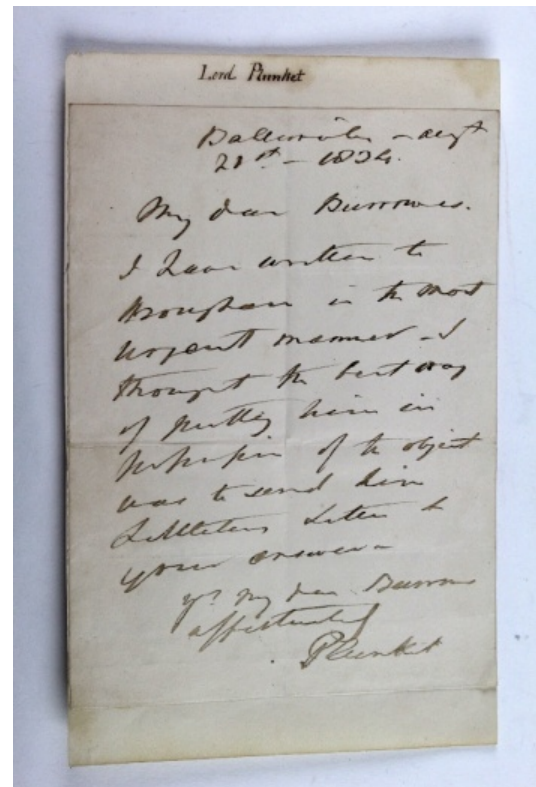 Lord Plunket
Augt
1834.
My dear Burrowes.
I have written to
Brougham in the most
urgent manner - I
thought the best way
of putting him in
possession of the object
was to send him
Littletons Letter &
your answer -
yrs my dear Burrowes
affectionately
Plunket